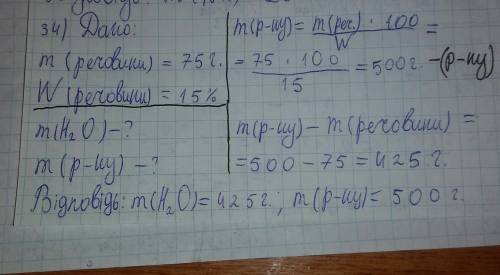 34) Дано:
m (речовини) = 75 г.
W (речовини) = 15%
m(H₂O) - ?
m (р-ну) - ?
m(р-ну) = m(реч.) · 100 / W =
= 75 · 100 / 15 = 500 г. - (р-ну)
m(р-ну) - m(речовини) =
= 500 - 75 = 425 г.
Відповідь: m(H₂O) = 425 г.; m(р-ну) = 500 г.